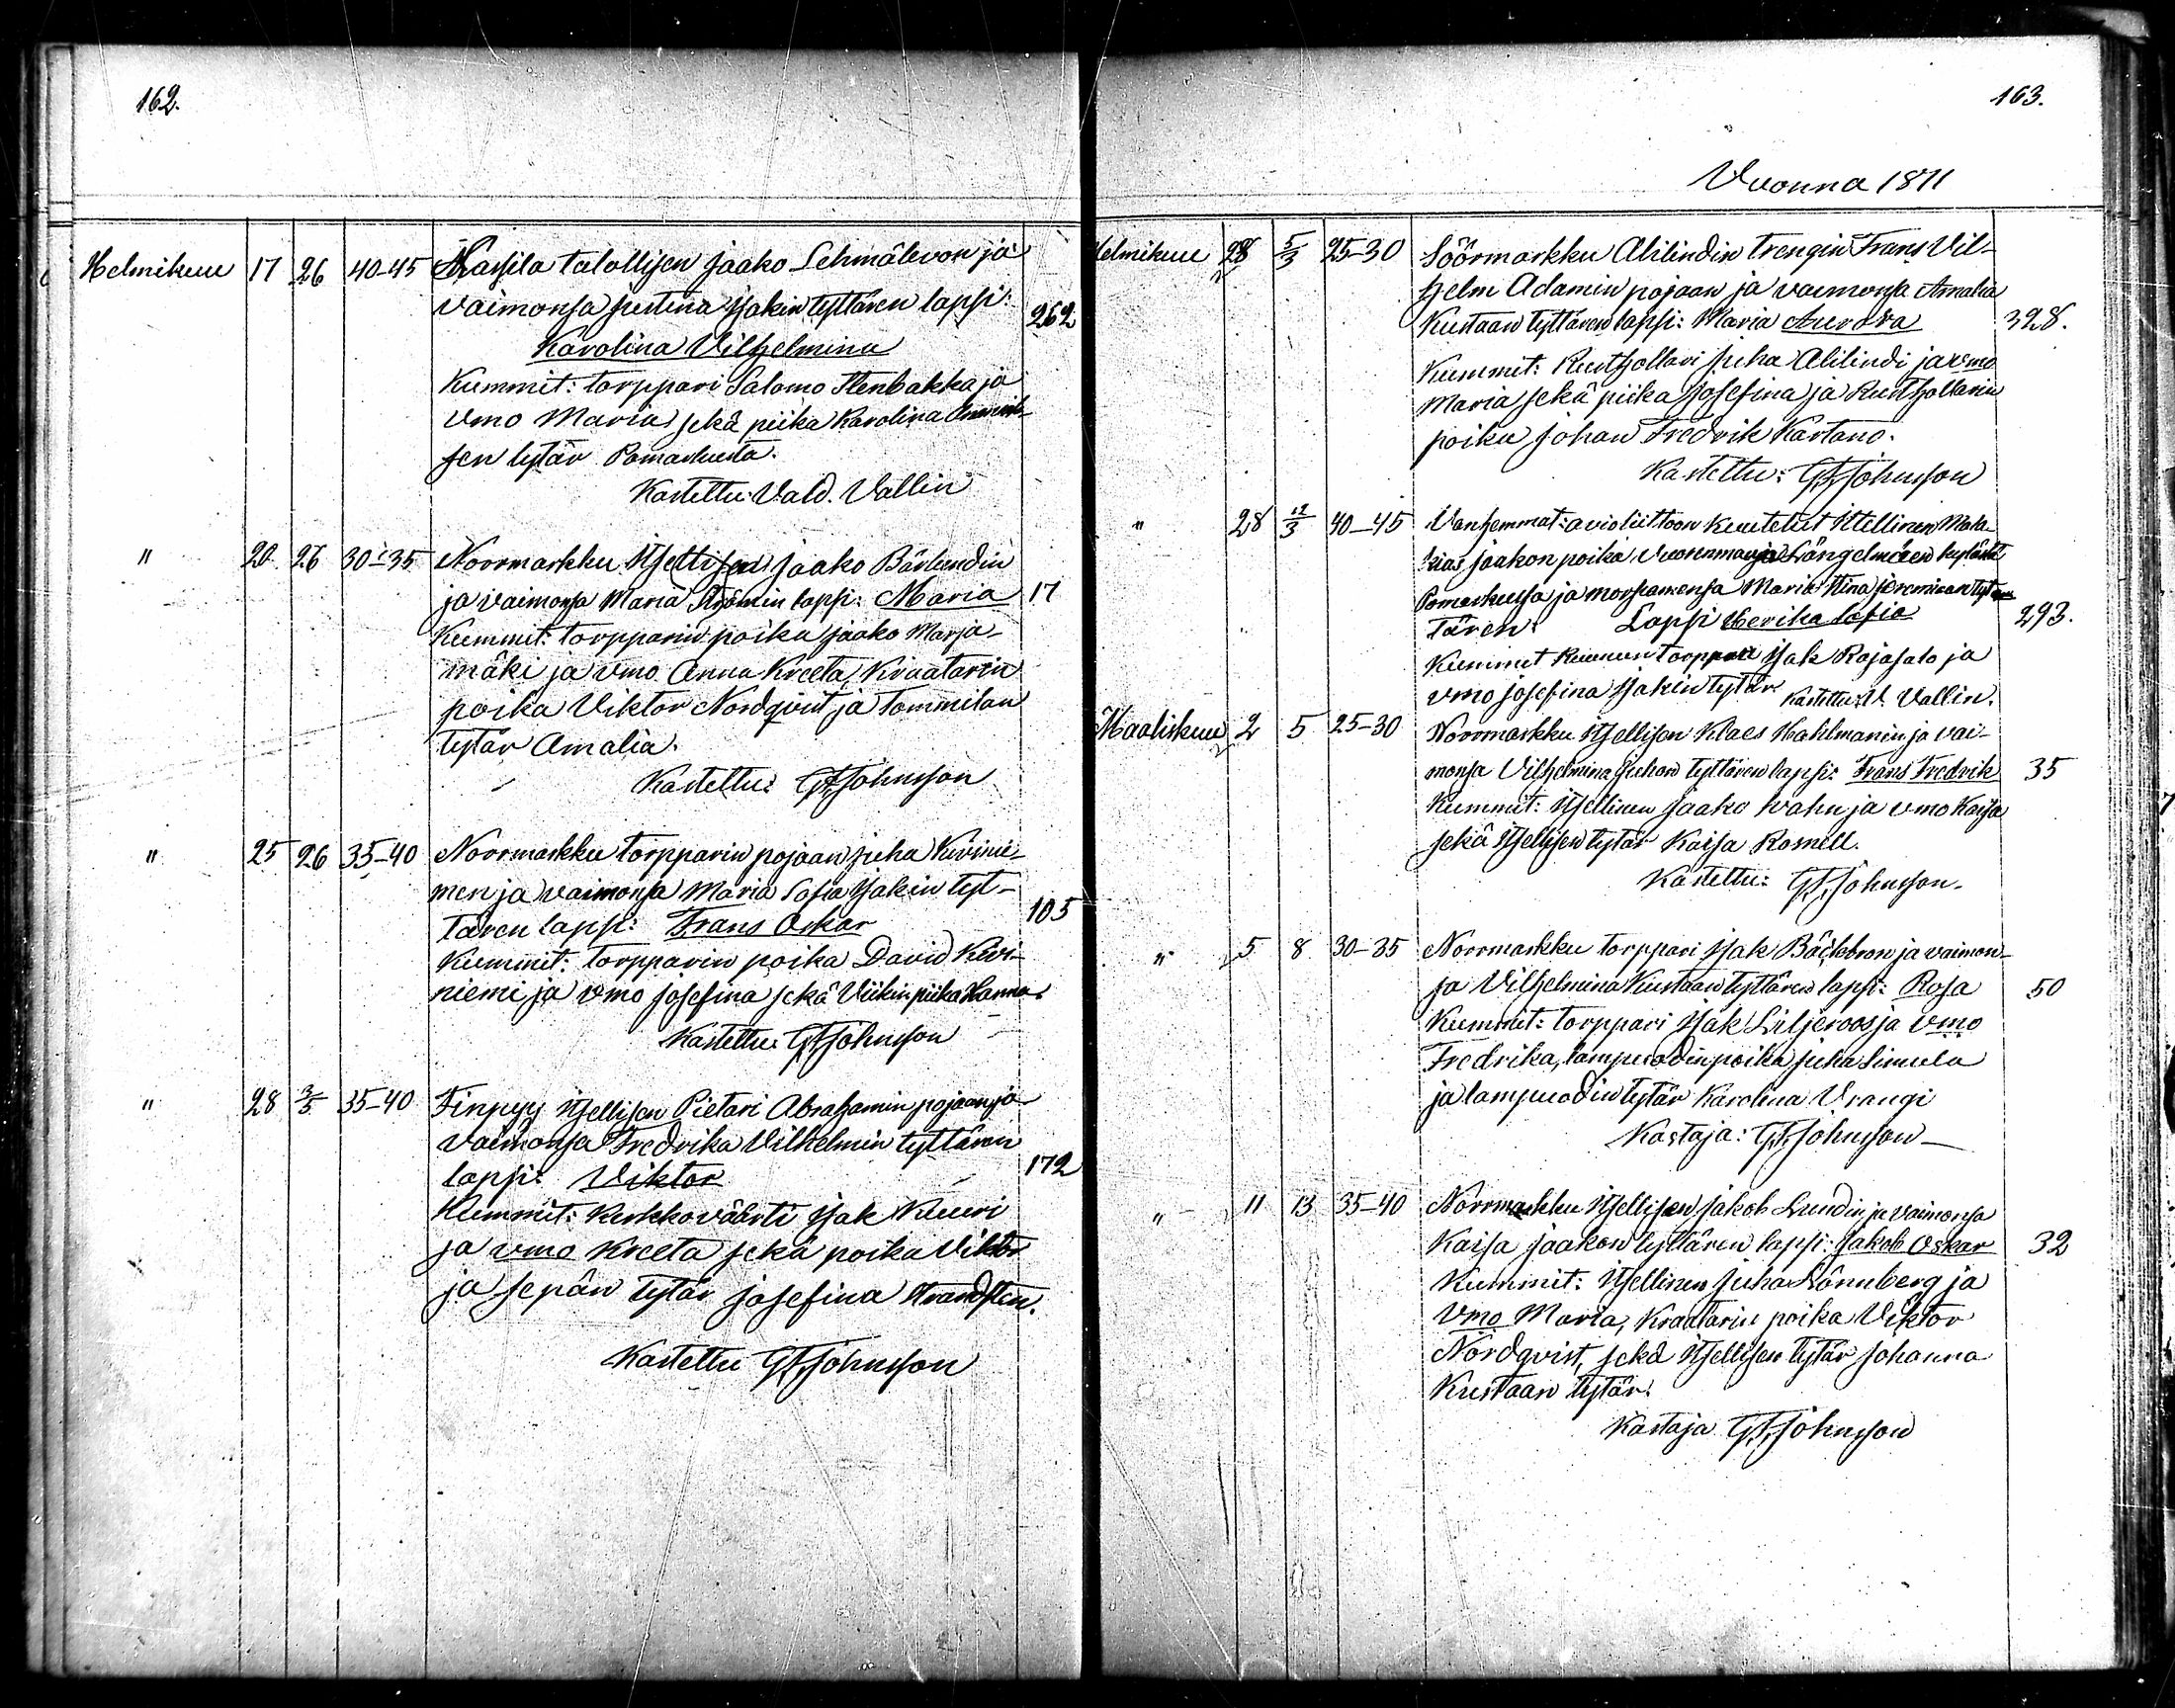 162.
Helmikuu 17 26 40-45 Kassila talollisen Jaako Lehmälevon ja
vaimonsa Justina Isakin tyttären lapsi: 262
Karolina Vilhelmina
Kummit: torppari Salomo Stenbakka ja
vmo Maria sekä piika Karolina
sen tytär Pomarkusta.
Kastettu: Vald. Vallin
" 20 26 30-35 Noormarkku Itsellisen Jaako Bärlundin
ja vaimonsa Maria lapsi: Maria 17
Kummit: torpparin poika Jaako Marja-
mäki ja vmo Anna Kreeta, Kraatarin
poika Viktor Nordqvist ja Tommilan
tytär Amalia.
Kastettu: GF Johnsson
" 25 26 35-40 Noormarkku torpparin pojaan Juha Kivinie-
men ja vaimonsa Maria Sofia Isakin tyt-
tären lapsi: Frans Oskar 105
Kummit: torpparin poika David Kivi-
niemi ja vmo Josefina sekä Viikin piika Hanna.
Kastettu: GF Johnsson
" 28 3/5 35-40 Finpyy Itsellisen Pietari Abrahamin pojaan ja
vaimonsa Fredrika Vilhelmin tyttären
lapsi: Viktor 172
Kummit: Kirkkoväärti Isak Kuuri
ja vmo Kreeta sekä poika Viktor
ja sepän tytär Josefina Strandsten.
Kastettu GF Johnsson
163.
Vuonna 1871
Helmikuu 28 5/3 25-30 Söörmarkku Alilindin trengin Frans Vil-
helm Adamin pojaan ja vaimonsa Amalia
Kustaan tyttären lapsi: Maria Aurora 328.
Kummit: Rusthollari Juha Alilindi ja vmo
Maria sekä piika Josefina ja Rusthollarin
poika Johan Fredrik Kartano.
Kastettu: GF Johnsson
" 28 12/3 40-45 Vanhemmat: avioliittoon kuulutetut Itellinen Mala-
kias Jaakon poika Längelmäen kylästä
Pomarkussa ja morsiamensa Maria Stina Jeremiaan tyt
tären. Lapsi Sofia 293.
Kummit torppari Isak Rajasalo ja
vmo Josefina Isakin tytär. Kastettu: V. Vallin.
Maaliskuu 2 5 25-30 Noormarkku Itsellisen Klaes Hahlmanin ja vai-
monsa Vilhelmina Juhan tyttären lapsi: Frans Fredrik 35
Kummit: Itsellinen Jaako ja vmo Kaisa
sekä Itsellisen tytär Kaisa Rosnell.
Kastettu: GF Johnsson.
" 5 8 30-35 Noormarkku torppari Isak Bäckbron ja vaimon-
sa Vilhelmina Kustaan tyttären lapsi: Rosa 50
Kummit: torppari Isak Liljeroos ja vmo
Fredrika, lampuodin poika Juha Simula
ja lampuodin tytär Karolina Vrangi
Kastaja: GF Johnsson
" 11 13 35-40 Noormarkku Itsellisen Jakob Lundin ja vaimonsa
Kaisa Jaakon tyttären lapsi: Jakob Oskar 32
Kummit: Itsellinen Juha Lönnberg ja
vmo Maria, Kraatarin poika Viktor
Nordqvist, sekä Itsellisen tytär Johanna
Kustaan tytär.
Kastaja GF Johnsson